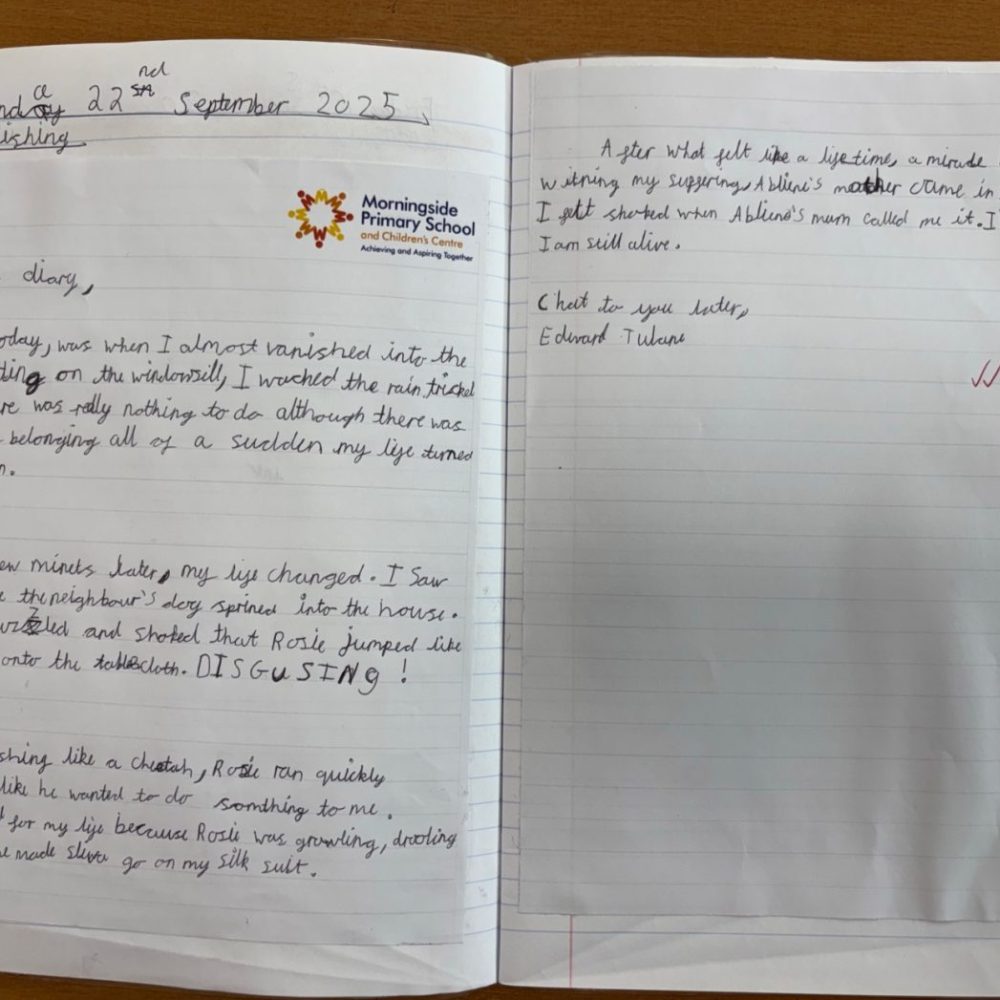 22nd September 2025
ishing
Morningside
Primary School
and Children's Centre
Achieving and Aspiring Together
diary,
oday, was when I almost vanished into the
ting on the windowsill, I wached the rain trickel
re was really nothing to do although there was
belonging all of a sudden my life turned
n.
ew minets later, my life changed. I saw
e the neighbour's dog sprined into the house.
uzzled and shoked that Rosie jumped like
onto the tablecloth. DISGUSING!
shing like a cheetah, Rosie ran quickly
like he wanted to do somthing to me.
for my life because Rosie was growling, drooling
e made sliva go on my silk suit.
After what felt like a lifetime, a miracle
witning my suffering, Abliene's mother came in
I felt shoked when Abliene's mum called me it. I
I am still alive.
Chat to you later,
Edward Tulane